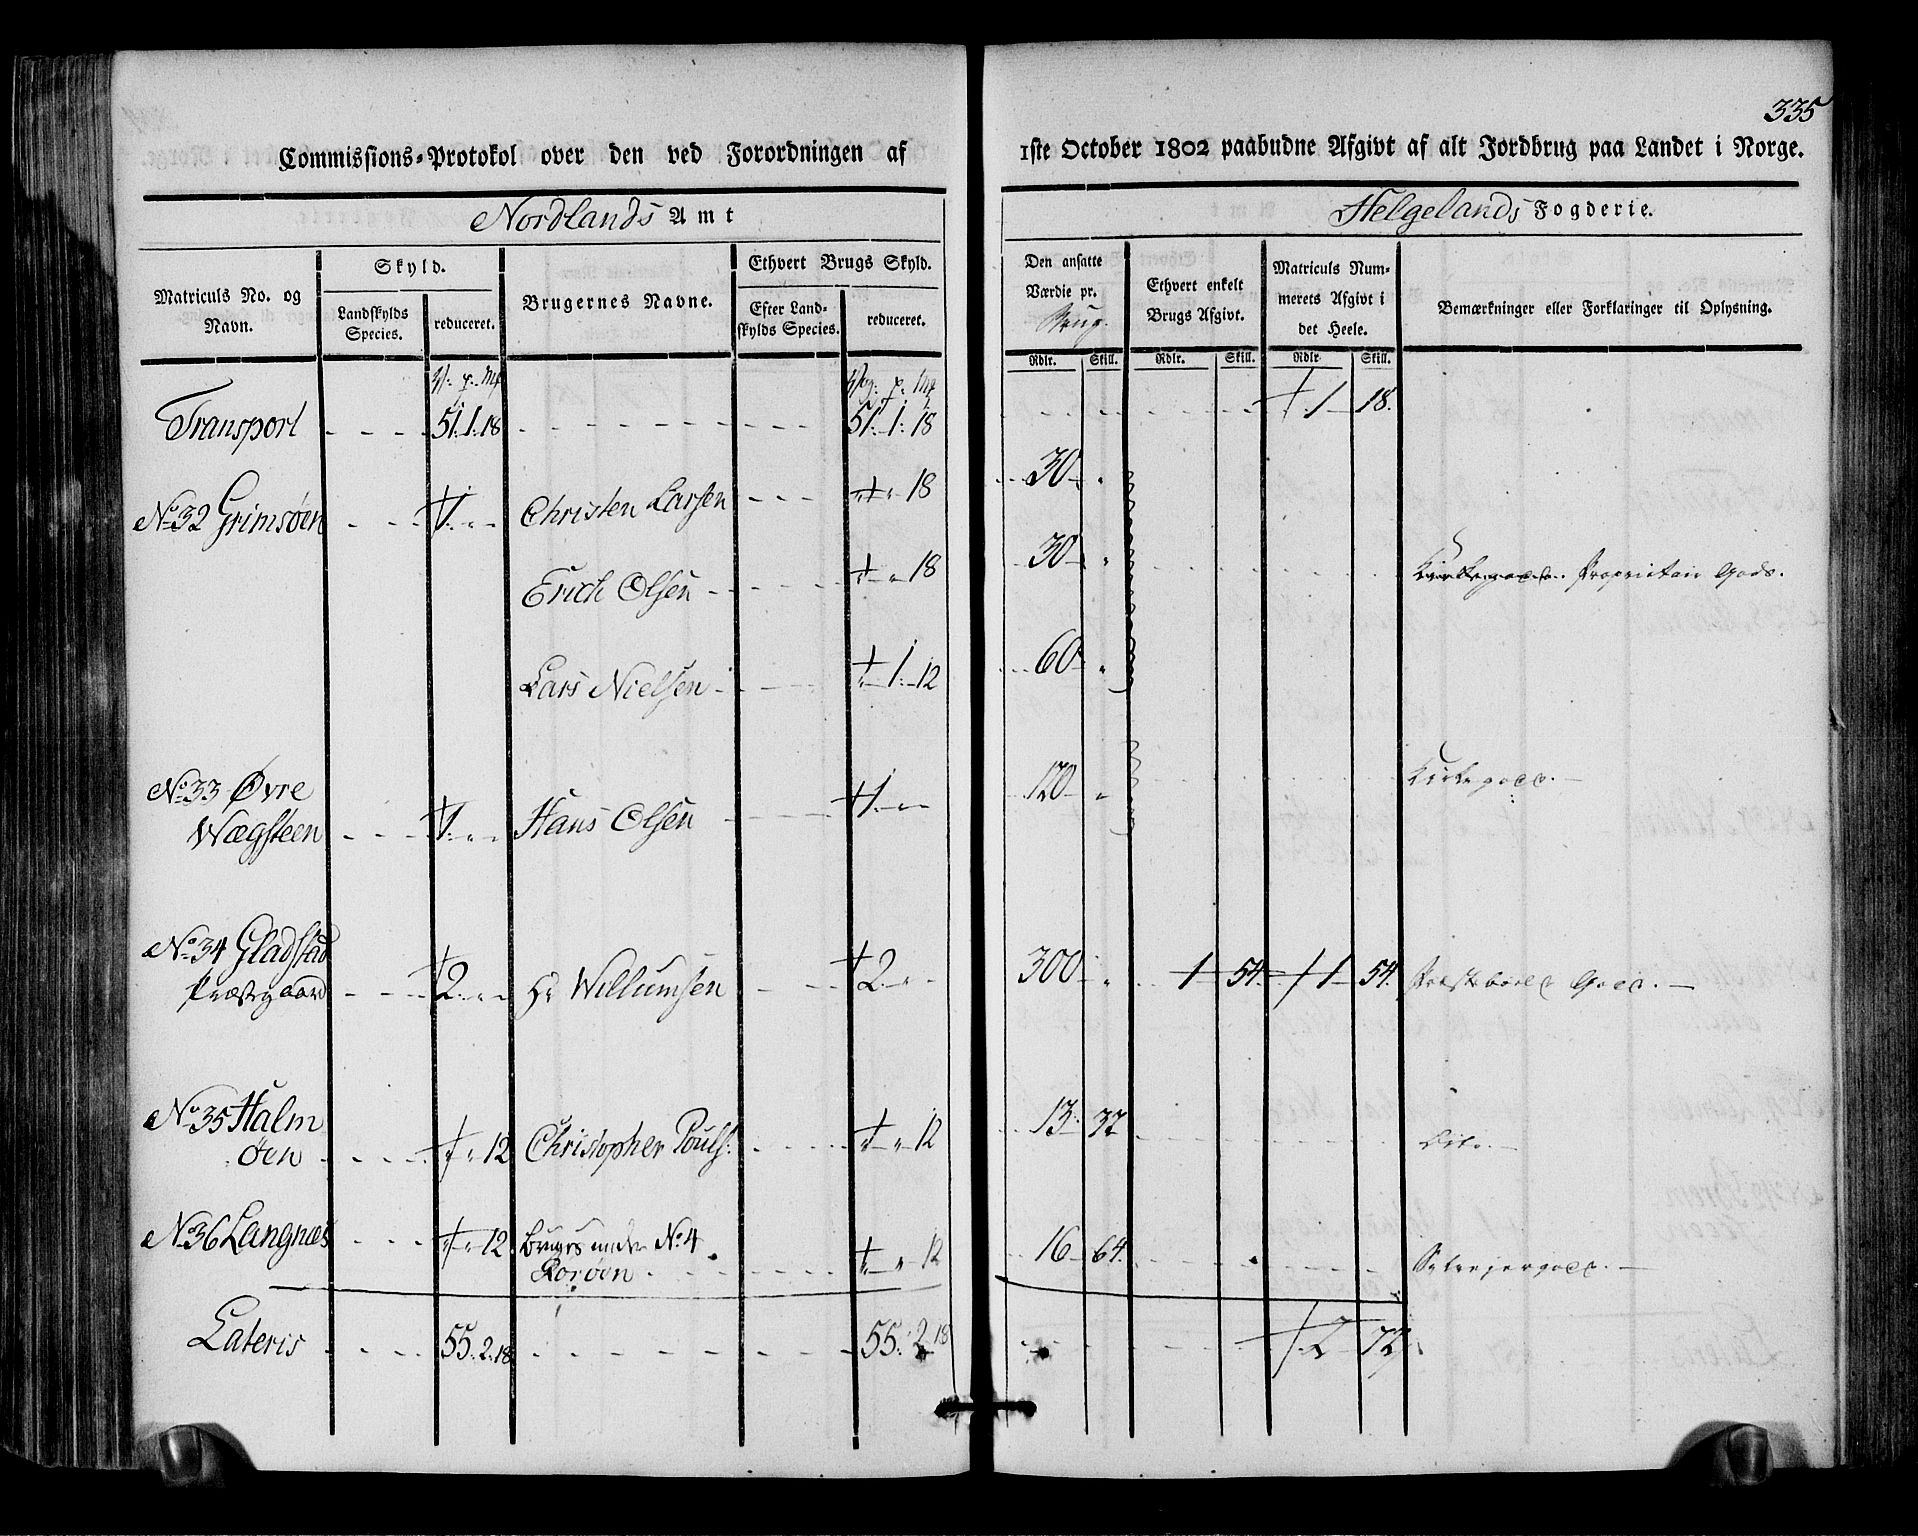 335
Commissions-Protokol over den ved Forordningen af 1ste October 1802 paabudne Afgivt af alt Jordbrug paa Landet i Norge.
Nordlands Amt
Helgelands Fogderie.
Matriculs No. og Navn.
Skyld.
Landskylds Species.
reduceret.
Brugernes Navne.
Ethvert Brugs Skyld.
Efter Landskylds Species.
reduceret.
Den ansatte Værdie pr. Brug.
Ethvert enkelt Brugs Afgivt.
Matriculs Nummerets Afgivt i det Heele.
Bemærkninger eller Forklaringer til Oplysning.
Rdlr. Skill. Rdlr. Skill. Rdlr. Skill.
Transport 51. 1. 18 51. 1. 18 1 18.
No 32 Grimsöen 1. " " Christen Larsen " " 18 30 "
Erich Olsen " " 18 30 " Proprietair Gods.
Lars Nielsen " 1. 12 60 "
No 33 Øvre
Wægsteen 1. " " Hans Olsen 1. " " 120 " Kirkegods.
No 34 Gladstad
Præstegaard 2. " " Hr Willumsen 2. " " 300 " 1 54. 1 54. Præstebolets Gods.
No 35 Halm
öen " " 12 Christopher Pouls: " " 12 13 32 Dito.
No 36 Langnæs " " 12 Bruges under No 4
Rorøen " " 12 16 64. Selvejergods.
Lateris 55. 2. 18 55. 2. 18 2 72.